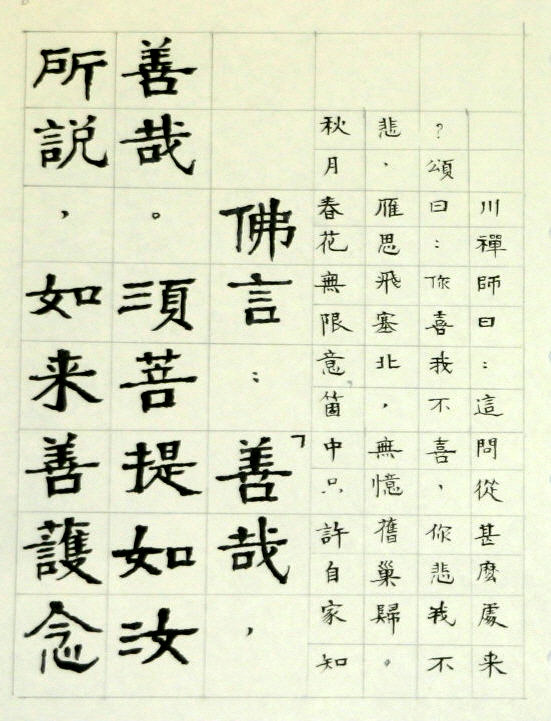 川禪師曰：這問從甚麼處来
？頌曰：你喜我不喜，你悲我不
悲，雁思飛塞北，無憶舊巢歸。
秋月春花無限意，箇中只許自家知
佛言：「善哉，
善哉。須菩提如汝
所説，如来善護念